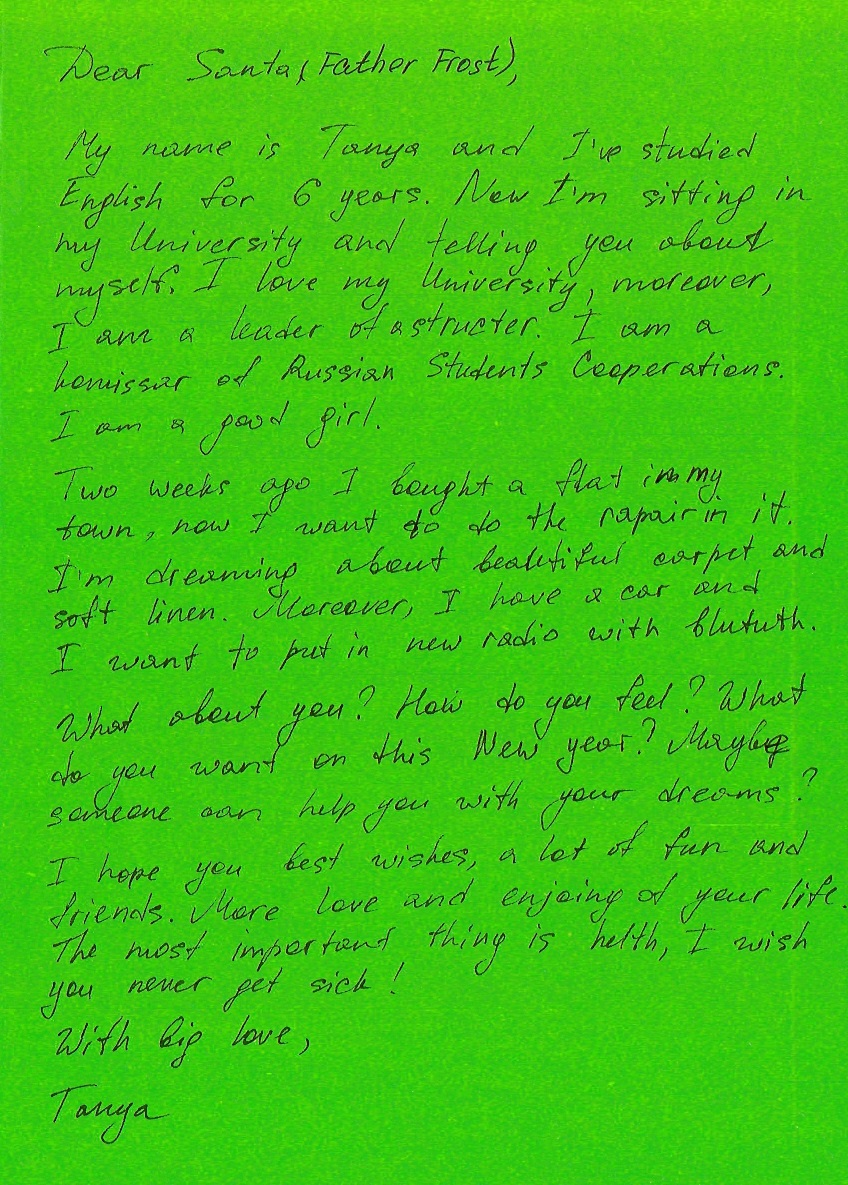 Dear Santa (Father Frost),
My name is Tanya and I've studied
English for 6 years. Now I'm sitting in
my University and telling you about
myself. I love my University, moreover,
I am a leader of a structer. I am a
komissar of Russian Students Cooperations.
I am a good girl.
Two weeks ago I bought a flat in my
town, now I want to do the rapair in it.
I'm dreaming about beautiful carpet and
soft linen. Moreover, I have a car and
I want to put in new radio with blututh.
What about you? How do you feel? What
do you want on this New year? Maybe
someone can help you with your dreams?
I hope you best wishes, a lot of fun and
friends. More love and enjoing of your life.
The most important thing is helth, I wish
you never get sick!
With big love,
Tanya